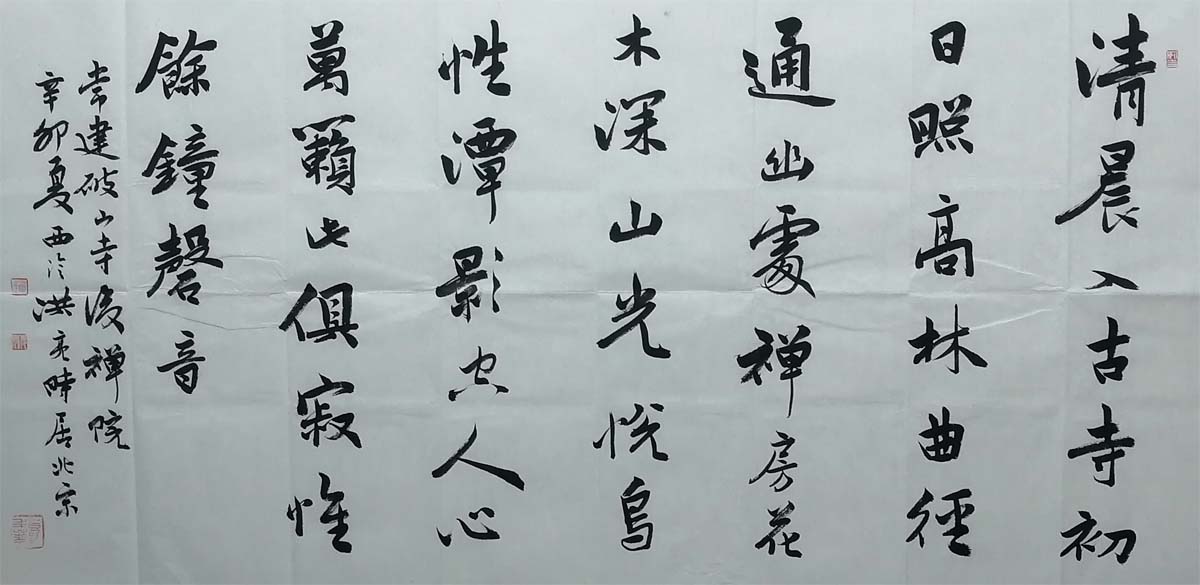 清晨入古寺初
日照高林曲徑
通幽處禅房花
木深山光悦鳥
性潭影空人心
萬籟此俱寂惟
餘鐘磬音
常建破山寺後禅院
辛卯夏西泠洪亮時居北京